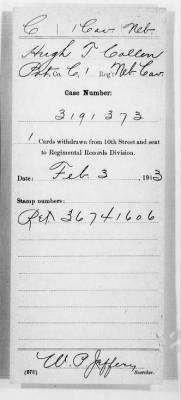 C | 1 Cav. Neb.
Hugh T Cullen
Pvt. Co. C, 1 Reg't Neb. Cav.
Case Number:
3191373
1 Cards withdrawn from 10th Street and sent
to Regimental Records Division.
Date: Feb. 3, 1913
Stamp numbers:
Ret 36741606
W. P. Jeffery
(373) Searcher.